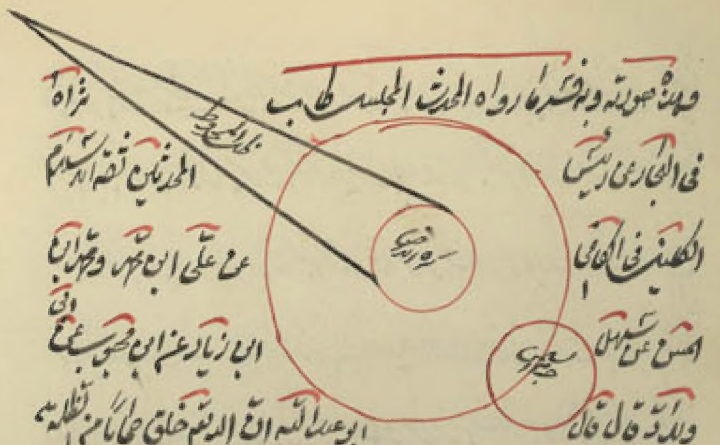 وهذه صورته وبه فسّر ما رواه المحدث المجلسي طاب ثراه
في البحار عن رئيس المحدثين ثقة الاسلام
الكليني في الكافي عن علي ابن محمد ومحمد ابن
ابي
الحسن عن سهل ابن زياد عن ابن محبوب عن
قال قال ابو عبد الله ان الله خلق حجابا من ظلمة
ظل المخروط
كرة الارض